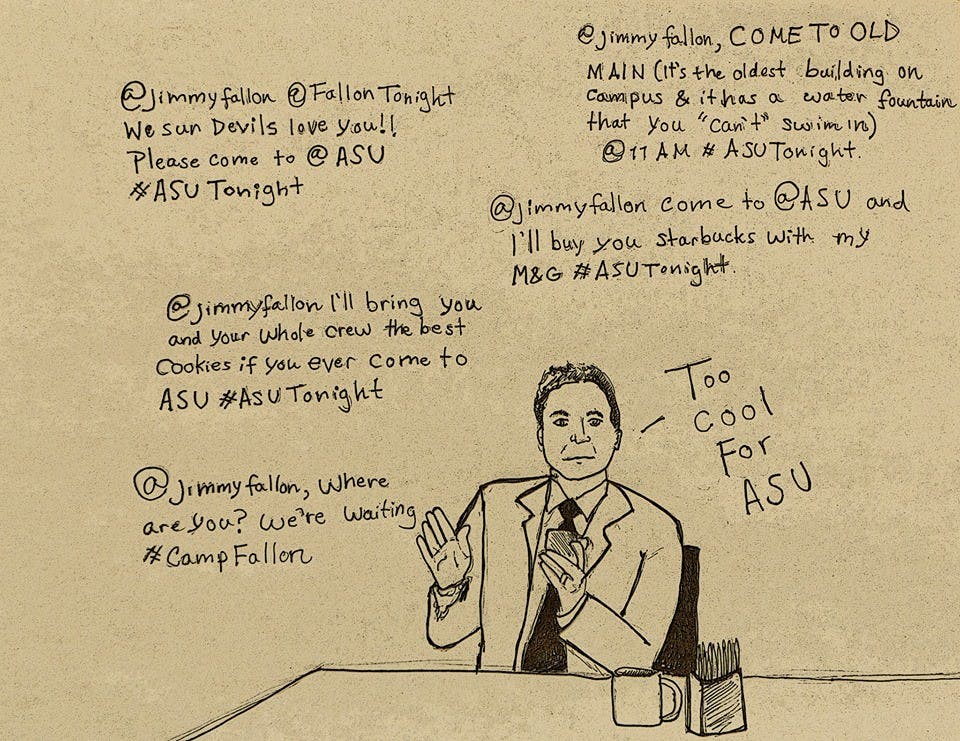 @jimmyfallon @FallonTonight
We sun Devils love you!!
Please come to @ASU
#ASUTonight
@jimmyfallon, COME TO OLD
MAIN (It's the oldest building on
campus & it has a water fountain
that you "can't" swim in)
@ 11 AM # ASUTonight.
@jimmyfallon come to @ASU and
I'll buy you starbucks with my
M&G #ASUTonight.
@jimmyfallon I'll bring you
and your whole crew the best
Cookies if you ever come to
ASU #ASUTonight
@jimmyfallon, Where
are you? We're waiting
#CampFallon
Too
Cool
For
ASU